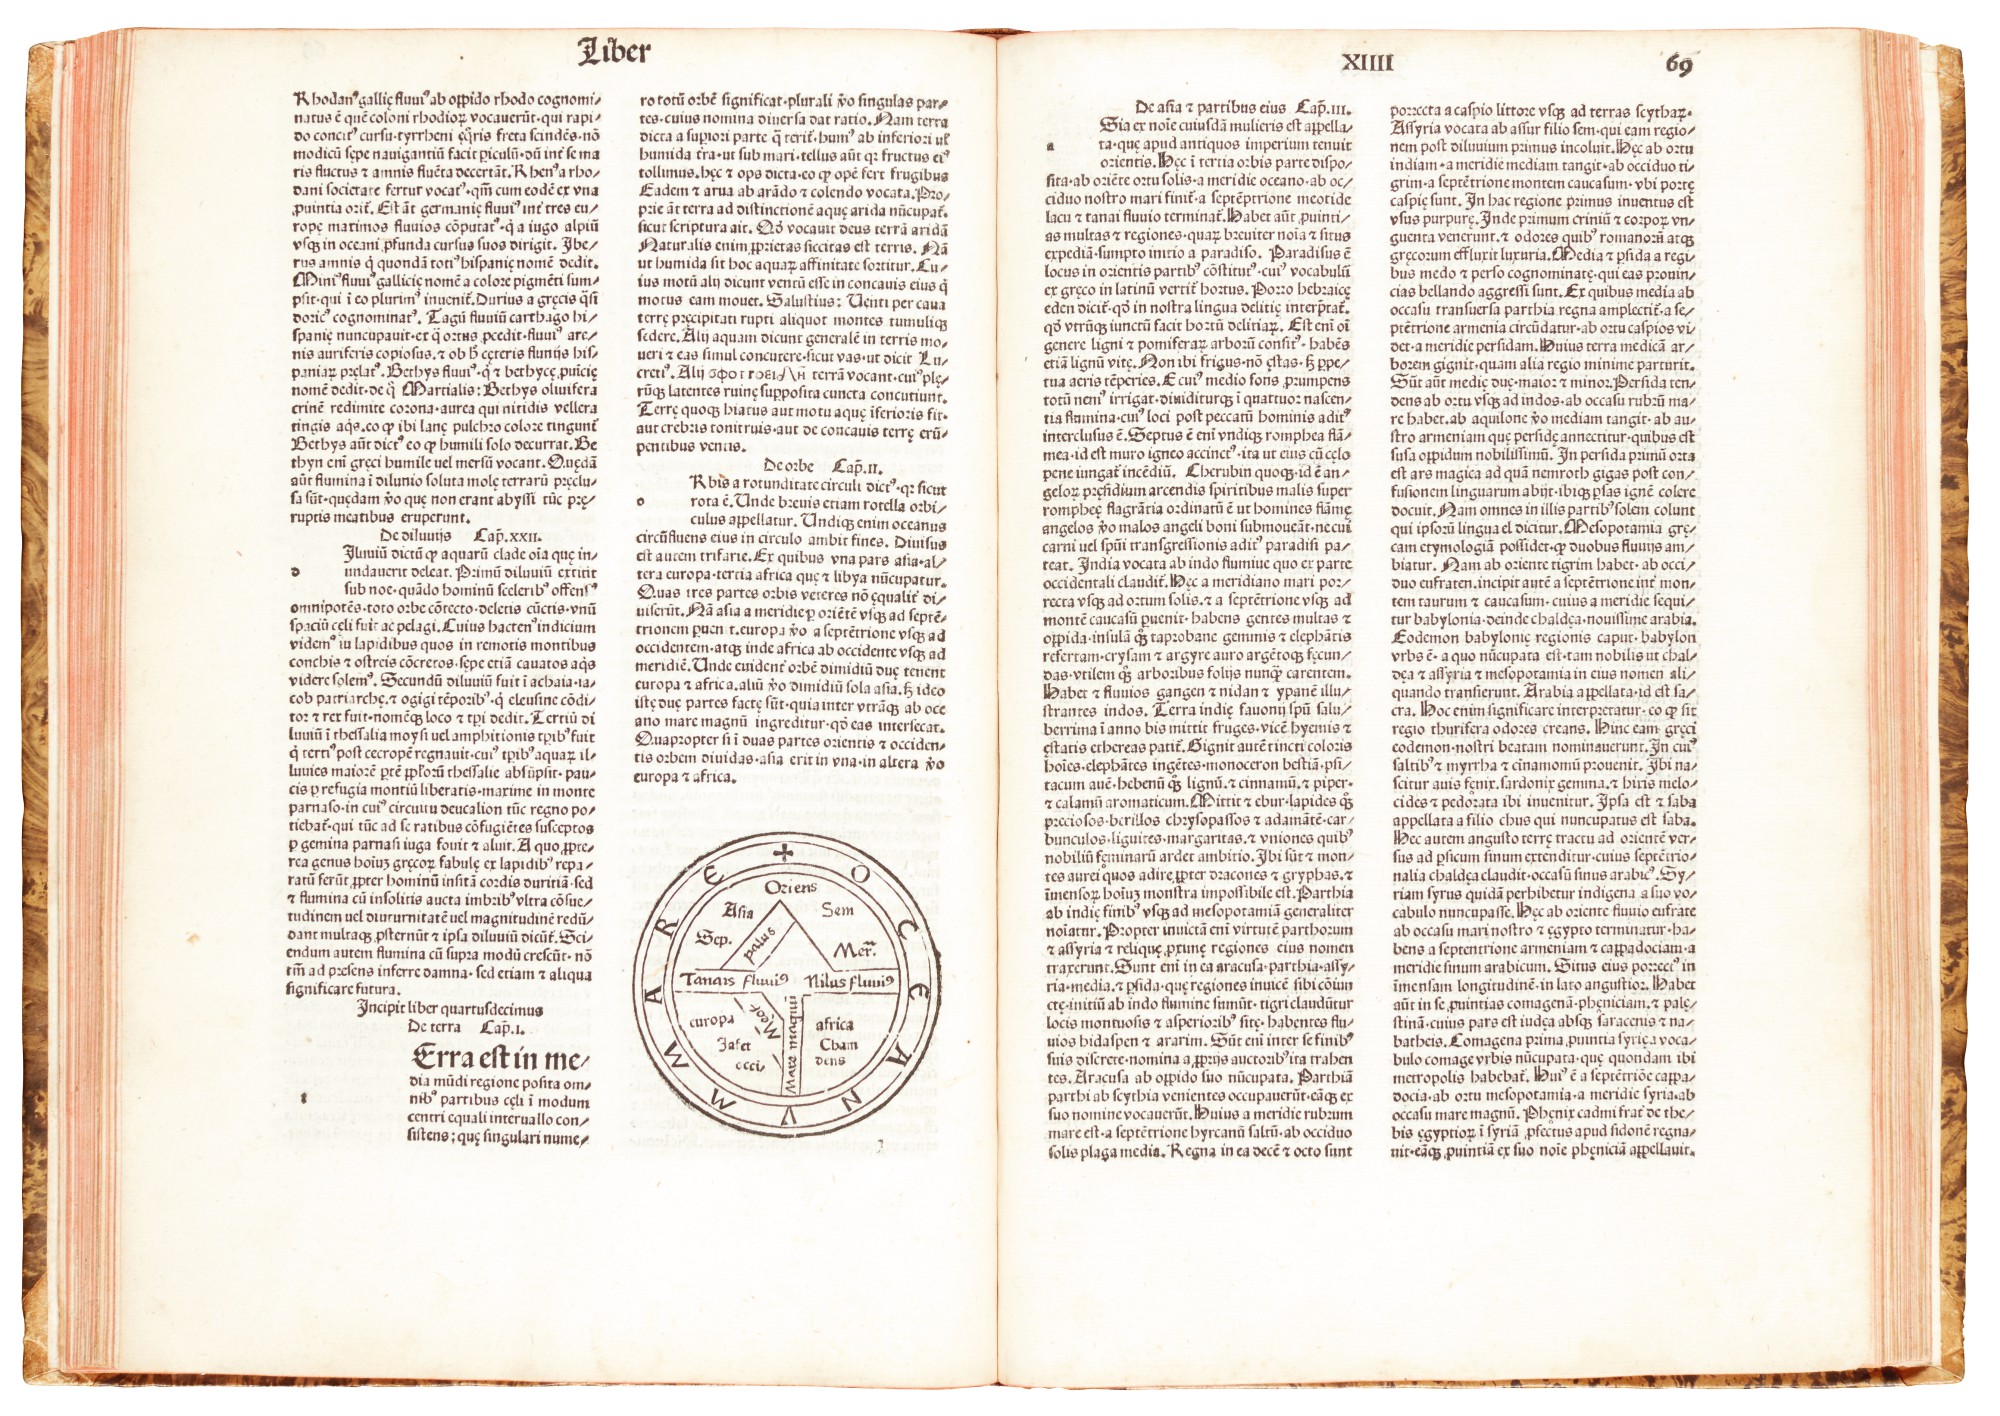 Liber
Rhodanꝰ gallię fluuiꝰ ab oppido rhodo cognomi/
natus ē quē coloni rhodioꝝ vocauerūt· qui rapi/
do concitꝰ cursu· tyrrheni ęq̄ris freta scindēs· nō
modicū sępe nauigantiū facit piculū· dū int̄ se ma
ris fluctus & amnis fluēta decertāt. Rhenꝰ a rho/
dani societate fertur vocatꝰ· qm̄ cum eodē ex vna
ꝓuintia orit̄. Est āt germanię fluuiꝰ int̄ tres eu/
ropę maximos fluuios cōputatꝰ· q̄ a iugo alpiū
vsqꝫ in oceani ꝓfunda cursus suos dirigit. Ibe/
rus amnis q̄ quondā totiꝰ hispanię nomē dedit.
Miniꝰ fluuiꝰ gallicię nomē a colore pigmēti sum/
psit· qui ī eo plurimꝰ inuenit̄. Durius a gręcis q̄si
doricꝰ cognominatꝰ. Tagū fluuiū carthago hi/
spanię nuncupauit· ex q̄ ortus ꝓcedit· fluuiꝰ are/
nis auriferis copiosus· & ob h̄ cęteris fluuijs his/
paniaꝝ pręlatꝰ. Bethys fluuiꝰ· q̄ & bethycę ꝓuīcię
nomē dedit· de q̄ Martialis: Bethys oliuifera
crinē redimite corona· aurea qui nitidis vellera
tingis aq̄s. eo ꝙ ibi lanę pulchro colore tingunt̄
Bethys aūt dictꝰ eo ꝙ humili solo decurrat. Be
thyn enī gręci humile uel mersū vocant. Quędā
aūt flumina ī diluuio soluta mole terrarū pręclu/
sa sūt· quędam v̄o quę non erant abyssi tūc prę/
ruptis meatibus eruperunt.
De diluuijs Cap̄.XXII.
Iluuiū dictū ꝙ aquarū clade oīa quę in/
d undauerit deleat. Primū diluuiū extitit
sub noe· quādo hominū sceleribꝰ offensꝰ
omnipotēs· toto orbe cōtecto· deletis cūctis· vnū
spaciū cęli fuit ac pelagi. Cuius hactenꝰ indicium
videmꝰ iu lapidibus quos in remotis montibus
conchis & ostreis cōcretos· sępe etiā cauatos aq̄s
videre solemꝰ. Secundū diluuiū fuit ī achaia· ia/
cob patriarchę· & ogigi tēporibꝰ· q̄ eleusine cōdi/
tor & rex fuit· nomēqꝫ loco & tp̄i dedit. Tertiū di
luuiū ī thessalia moysi uel amphitionis tp̄ibꝰ fuit
q̄ tertiꝰ post cecropē regnauit· cuiꝰ tp̄ibꝰ aquaꝝ il/
luuies maiorē ptē pp̄loꝝ thessalie absūpsit· pau/
cis p refugia montiū liberatis· maxime in monte
parnaso· in cuiꝰ circuitu deucalion tūc regno po/
tiebat̄· qui tūc ad se ratibus cōfugiētes susceptos
p gemina parnasi iuga fouit & aluit. A quo ꝓpte/
rea genus hoīuꝫ gręcoꝝ fabulę ex lapidibꝰ repa/
ratū ferūt ꝓpter hominū insitā cordis duritiā· sed
& flumina cū insolitis aucta imbribꝰ vltra cōsue/
tudinem uel diuturnitatē uel magnitudinē redū/
dant multaqꝫ ꝓsternūt & ipsa diluuiū dicūt̄. Sci/
endum autem flumina cū supra modū crescūt· nō
tm̄ ad pręsens inferre damna· sed etiam & aliqua
significare futura.
Incipit liber quartusdecimus
De terra Cap̄.I.
Erra est in me/
dia mūdi regione posita om/
t nibꝰ partibus cęli ī modum
centri equali interuallo con/
sistens; quę singulari nume/
ro totū orbē significat· plurali v̄o singulas par/
tes. cuius nomina diuersa dat ratio. Nam terra
dicta a supiori parte q̄ terit̄. humꝰ ab inferiori ul̄
humida t̄ra· ut sub mari· tellus aūt qꝛ fructus eiꝰ
tollimus. hęc & ops dicta· eo ꝙ opē fert frugibus
Eadem & arua ab arādo & colendo vocata. Pro/
prie āt terra ad distinctionē aquę arida nūcupat̄.
sicut scriptura ait. Qd̄ vocauit deus terrā aridā
Naturalis enim ꝓprietas siccitas est terris. Nā
ut humida sit hoc aquaꝝ affinitate sortitur. Cu/
ius motū alij dicunt ventū esse in concauis eius q̄
motus eam mouet. Salustius: Uenti per caua
terrę pręcipitati rupti aliquot montes tumuliqꝫ
sedere. Alij aquam dicunt generalē in terris mo/
ueri & eas simul concutere· sicut vas· ut dicit Lu/
cretiꝰ. Alij terrā vocant· cuiꝰ plę/
rūqꝫ latentes ruinę supposita cuncta concutiunt.
Terrę quoqꝫ hiatus aut motu aquę īferioris fit·
aut crebris tonitruis· aut de concauis terrę erū/
pentibus ventis.
De orbe Cap̄.II.
Rbis a rotunditate circuli dictꝰ· qꝛ sicut
o rota ē. Unde breuis etiam rotella orbi/
culus appellatur. Undiqꝫ enim oceanus
circūfluens eius in circulo ambit fines. Diuisus
est autem trifarie. Ex quibus vna pars asia· al/
tera europa· tertia africa quę & libya nūcupatur.
Quas tres partes orbis veteres nō ęqualit̄ di/
uiserūt. Nā asia a meridie p oriētē vsqꝫ ad septē/
trionem puenit. europa v̄o a septētrione vsqꝫ ad
occidentem· atqꝫ inde africa ab occidente vsqꝫ ad
meridiē. Unde euident̄ orbē dimidiū duę tenent
europa & africa. aliū v̄o dimidiū sola asia. sꝫ ideo
istę duę partes factę sūt· quia inter vtrāqꝫ ab oce
ano mare magnū ingreditur· qd̄ eas intersecat.
Quapropter si ī duas partes orientis & occiden/
tis orbem diuidas· asia erit in vna· in altera v̄o
europa & africa.
MARE OCEANVM
Oriens
Asia Sem
Sep. palus Mer.
Tanais fluuiꝰ Nilus fluuiꝰ
europa Meot africa
Iafet Cham
occi/ dens
Mare mediū
XIIII
69
De asia & partibus eius Cap̄.III.
Sia ex noīe cuiusdā mulieris est appella/
a ta· quę apud antiquos imperium tenuit
orientis. Hęc ī tertia orbis parte dispo/
sita· ab oriēte ortu solis· a meridie oceano· ab oc/
ciduo nostro mari finit̄· a septētrione meotide
lacu & tanai fluuio terminat̄. Habet aūt ꝓuinti/
as multas & regiones· quaꝝ breuiter noīa & situs
expediā· sumpto initio a paradiso. Paradisus ē
locus in orientis partibꝰ cōstitutꝰ· cuiꝰ vocabulū
ex gręco in latinū vertit̄ hortus. Porro hebraice
eden dicit̄· qd̄ in nostra lingua delitię interp̄tat̄.
qd̄ vtrūqꝫ iunctū facit hortū delitiaꝝ. Est enī oī
genere ligni & pomiferaꝝ arborū consitꝰ· habēs
etiā lignū vitę. Non ibi frigus· nō ęstas· sꝫ ppe/
tua aeris tēperies. E cuiꝰ medio fons ꝓrumpens
totū nemꝰ irrigat· diuiditurqꝫ ī quattuor nascen/
tia flumina· cuiꝰ loci post peccatū hominis aditꝰ
interclusus ē. Septus ē enī vndiqꝫ romphea flā/
mea· id est muro igneo accinctꝰ· ita ut eius cū cęlo
pene iungat̄ incēdiū. Cherubin quoqꝫ· id ē an/
geloꝝ pręsidium arcendis spiritibus malis super
rompheę flagrātia ordinatū ē ut homines flāmę
angelos v̄o malos angeli boni submoueāt· ne cui
carni uel spūi transgressionis aditꝰ paradisi pa/
teat. India vocata ab indo flumine quo ex parte
occidentali claudit̄. Hęc a meridiano mari por/
recta vsqꝫ ad ortum solis· & a septētrione vsqꝫ ad
montē caucasū puenit· habens gentes multas &
oppida· insulā qꝫ taprobane gemmis & elephātis
refertam· crysam & argyre auro argētoqꝫ fęcun/
das· vtilem qꝫ arboribus folijs nunq̄ carentem.
Habet & fluuios gangen & nidan & ypanē illu/
strantes indos. Terra indię fauonij spū salu/
berrima ī anno bis mittit fruges· vicē hyemis &
ęstatis ethereas patit̄. Gignit autē tincti coloris
hoīes· elephātes ingētes· monoceron bestiā· psi/
tacum auē· hebenū qꝫ lignū· & cinnamū· & piper·
& calamū aromaticum. Mittit & ebur· lapides qꝫ
preciosos· berillos chrysopassos & adamātē· car/
bunculos· liguites· margaritas· & vniones quibꝰ
nobiliū fęminarū ardet ambitio. Ibi sūt & mon/
tes aurei quos adire ꝓpter dracones & gryphas· &
īmensoꝝ hoīuꝫ monstra impossibile est. Parthia
ab indię finibꝰ vsqꝫ ad mesopotamiā generaliter
noīatur. Propter inuictā enī virtutē parthorum
& assyria & reliquę ꝓximę regiones eius nomen
traxerunt. Sunt enī in ea aracusa· parthia· assy/
ria· media· & p̄sida· quę regiones inuicē sibi cōiun
ctę· initiū ab indo flumine sumūt· tigri claudūtur
locis montuosis & asperioribꝰ sitę· habentes flu/
uios hidaspen & ararim. Sūt enī inter se finibꝰ
suis discretę· nomina a ꝓprijs auctoribꝰ ita trahen
tes. Aracusa ab oppido suo nūcupata. Parthiā
parthi ab scythia venientes occupauerūt· eāqꝫ ex
suo nomine vocauerūt. Huius a meridie rubrum
mare est· a septētrione hyrcanū saltū· ab occiduo
solis plaga media. Regna in ea decē & octo sunt
porrecta a caspio littore vsqꝫ ad terras scythaꝝ.
Assyria vocata ab assur filio sem· qui eam regio/
nem post diluuium primus incoluit. Hęc ab ortu
indiam· a meridie mediam tangit· ab occiduo ti/
grim· a septētrione montem caucasum· vbi portę
caspię sunt. In hac regione primus inuentus est
vsus purpurę. Inde primum criniū & corpoꝝ vn/
guenta venerunt· & odores quibꝰ romanorū atqꝫ
gręcorum effluxit luxuria. Media & p̄sida a regi/
bus medo & perso cognominatę· qui eas prouin/
cias bellando aggressi sunt. Ex quibus media ab
occasu transuersa parthia regna amplectit̄· a se/
ptētrione armenia circūdatur· ab ortu caspios vi/
det· a meridie persidam. Huius terra medicā ar/
borem gignit· quam alia regio minime parturit.
Sūt aūt medię duę· maior & minor. Persida ten/
dens ab ortu vsqꝫ ad indos· ab occasu rubrū ma/
re habet· ab aquilone v̄o mediam tangit· ab au/
stro armeniam quę persidę annectitur· quibus est
susa oppidum nobilissimū. In persida primū orta
est ars magica ad quā nemroth gigas post con/
fusionem linguarum abijt· ibiqꝫ p̄sas ignē colere
docuit. Nam omnes in illis partibꝰ solem colunt
qui ipsorū lingua el dicitur. Mesopotamia grę/
cam etymologiā possidet· ꝙ duobus fluuijs am/
biatur. Nam ab oriente tigrim habet· ab occi/
duo eufraten. incipit autē a septētrione int̄ mon/
tem taurum & caucasum· cuius a meridie sequi/
tur babylonia· deinde chaldęa· nouissime arabia.
Eodemon babylonię regionis caput· babylon
vrbs ē· a quo nūcupata est· tam nobilis ut chal/
dęa & assyria & mesopotamia in eius nomen ali/
quando transierunt. Arabia appellata· id est sa/
cra. Hoc enim significare interpretatur· eo ꝙ sit
regio thurifera odores creans. Hinc eam gręci
eodemon· nostri beatam nominauerunt. In cuiꝰ
saltibꝰ & myrrha & cinamomū prouenit. Ibi na/
scitur auis fęnix. sardonix gemma· & hiris melo/
cides & pedorata ibi inuenitur. Ipsa est & saba
appellata a filio chus qui nuncupatus est saba.
Hęc autem angusto terrę tractu ad orientē ver/
sus ad p̄sicum sinum extenditur· cuius septētrio/
nalia chaldęa claudit· occasū sinus arabicꝰ. Sy/
riam syrus quidā perhibetur indigena a suo vo/
cabulo nuncupasse. Hęc ab oriente fluuio eufrate
ab occasu mari nostro & ęgypto terminatur· ha/
bens a septentrione armeniam & cappadociam· a
meridie sinum arabicum. Situs eius porrectꝰ in
īmensam longitudinē· in lato angustior. Habet
aūt in se ꝓuintias comagenā· phęniciam· & palę/
stinā· cuius pars est iudęa absqꝫ saracenis & na/
batheis. Comagena prima ꝓuintia syrięa voca/
bulo comagę vrbis nūcupata· quę quondam ibi
metropolis habebat̄. Huiꝰ ē a septētriōe cappa/
docia· ab ortu mesopotamia· a meridie syria· ab
occasu mare magnū. Phęnix cadmi frat̄ de the/
bis ęgyptioꝝ ī syriā ꝓfectus apud sidonē regna/
uit· eāqꝫ ꝓuintiā ex suo noīe phęniciā appellauit.